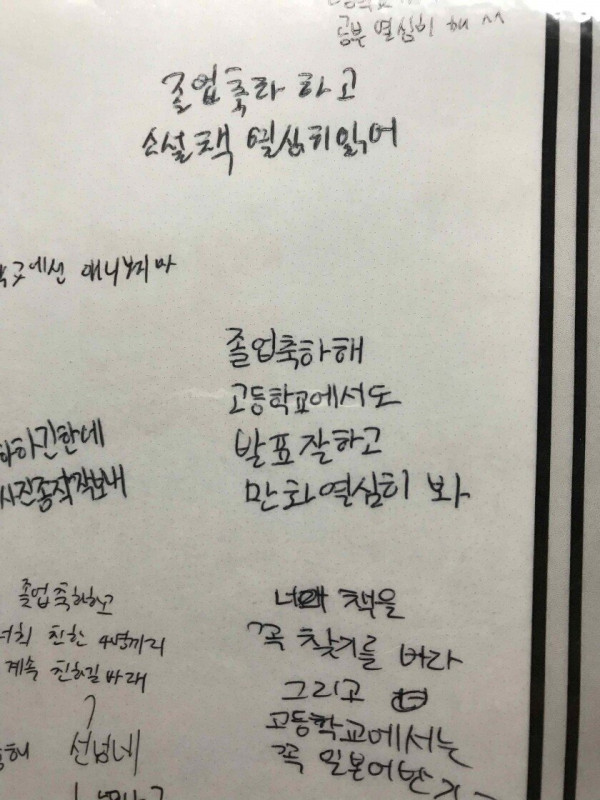 공부 열심히 해 ^^
졸업축하 하고
소설책 열심히읽어
에선 애니보지마
졸업축하해
고등학교에서도
발표잘하고
만화열심히 봐
하긴한데
사진좀작작보내
졸업축하하고
너희 친한 4명끼리
계속 친하길바래
선넘네
책을
꼭 찾기를 바라
그리고
고등학교에서는
꼭 일본어반가